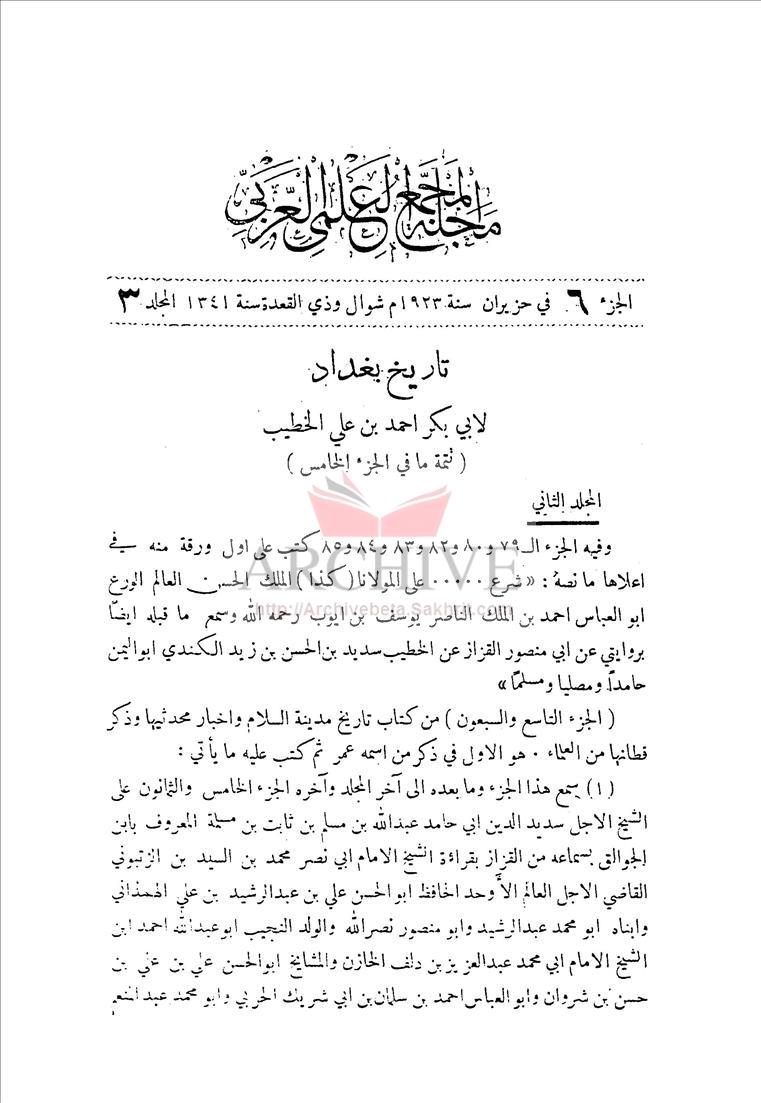 مجلة المجمع العلمي العربي
الجزء ٦ في حزيران سنة ١٩٢٣م شوال وذي القعدة سنة ١٣٤١ المجلد ٣
تاريخ بغداد
لابي بكر احمد بن علي الخطيب
( تتمة ما في الجزء الخامس )
المجلد الثاني
وفيه الجزء الـ ٧٩ و ٨٠ و ٨٢ و ٨٣ و ٨٤ و ٨٥ كتب على اول ورقة منه في
اعلاها ما نصهُ : « شرع ٠٠٠٠٠ على المولانا ( كذا ) الملك الحسن العالم الورع
ابو العباس احمد بن الملك الناصر يوسف بن ايوب رحمه الله وسمع ما قبله ايضاً
بروايتي عن ابي منصور القزاز عن الخطيب سديد بن الحسن بن زيد الكندي ابو اليمن
حامداً ومصليا ومسلماً »
( الجزء التاسع والسبعون ) من كتاب تاريخ مدينة السلام واخبار محدثيها وذكر
قطانها من العلماء ٠ هو الاول في ذكر من اسمه عمر ثم كتب عليه ما يأتي :
( ١ ) سمع هذا الجزء وما بعده الى آخر المجلد وآخره الجزء الخامس والثمانون على
الشيخ الاجل سديد الدين ابي حامد عبدالله بن مسلم بن ثابت بن مسلمة المعروف بابن
الجوالق بسماعه من القزاز بقراءة الشيخ الامام ابي نصر محمد بن السيد بن الزتبوني
القاضي الاجل العالم الأوحد الحافظ ابو الحسن علي بن عبدالرشيد بن علي الهمذاني
وابناه ابو محمد عبدالرشيد وابو منصور نصرالله والولد النجيب ابوعبدالله احمد ابن
الشيخ الامام ابي محمد عبدالعزيز بن دلف الخازن والمشايخ ابوالحسن علي بن علي بن
حسن بن شروان وابو العباس احمد بن سلمان بن ابي شريك الحربي وابو محمد عبدالمنعم
ARCHIVE
http://Archivebeta.Sakhrit.com